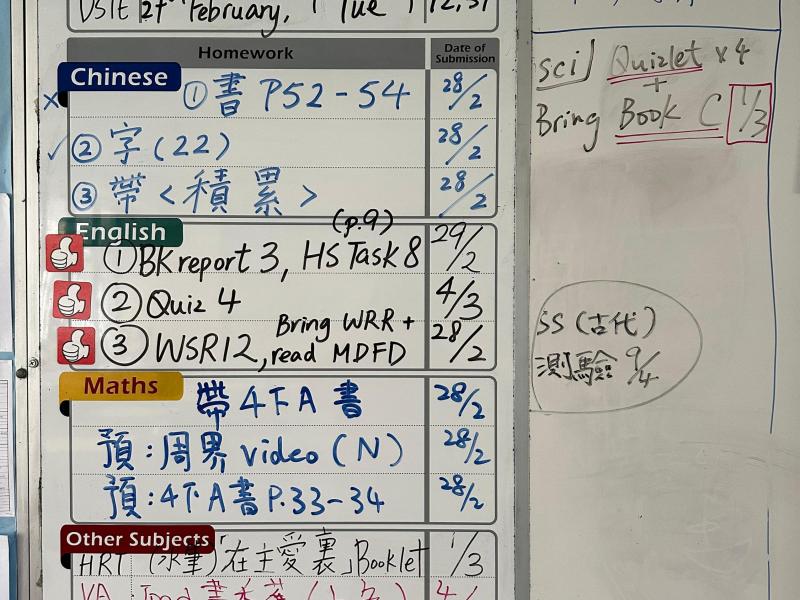 27 February, Tue
Homework
Date of Submission
Chinese
① 書 P52-54 28/2
② 字(22) 28/2
③ 帶<積累> 28/2
English
(p.9)
① BK report 3, HS Task 8 29/2
② Quiz 4 4/3
Bring WRR +
③ WSR12, read MDFD 28/2
Maths
帶4下A書 28/2
預:周界 video (N) 28/2
預:4下A書P.33-34 28/2
Other Subjects
HRT (水筆)「在主愛裏」Booklet 1/3
VA
sci Quizlet x4
+
Bring Book C 1/3
SS (古代)
測驗 9/4